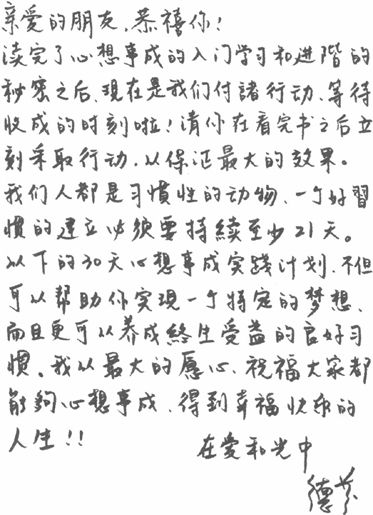 亲爱的朋友,恭禧你!
读完了心想事成的入门学习和进階的
秘密之后,现在是我们付諸行动、等待
收成的时刻啦!请你在看完书之后立
刻采取行动,以保证最大的效果。
我们人都是习慣性的动物,一个好習
慣的建立必须要持續至少21天。
以下的30天心想事成实践计划,不但
可以帮助你实現一个特定的梦想,
而且更可以养成終生受益的良好习
慣。我以最大的愿心,祝福大家都
能夠心想事成,得到幸福快乐的
人生!!
在爱和光中
德芬